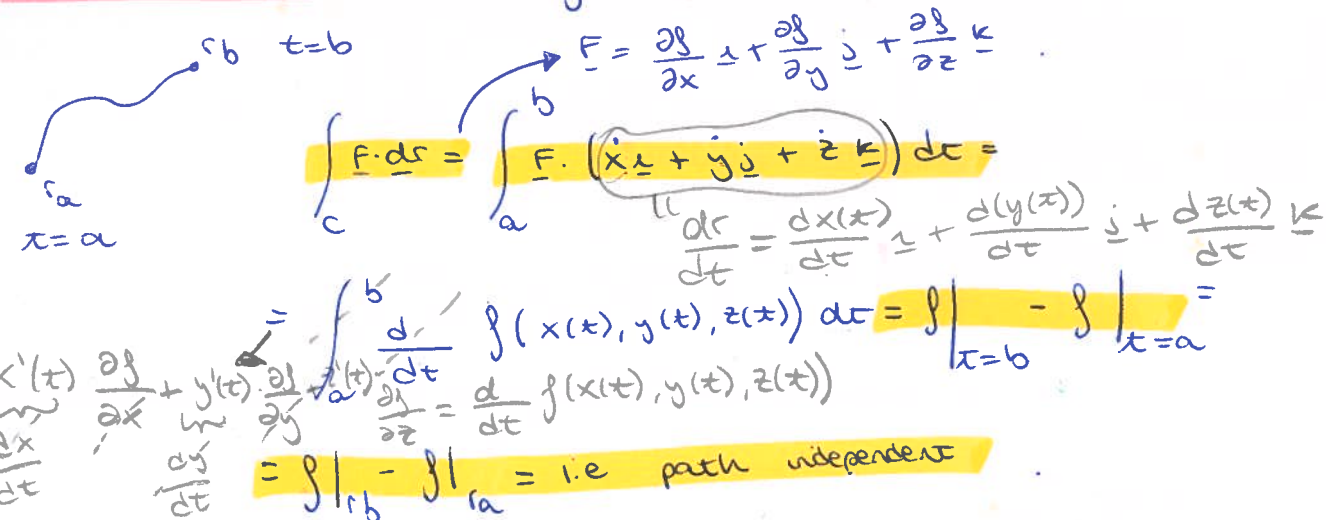 r_b t=b F = ∂f/∂x i + ∂f/∂y j + ∂f/∂z k .
∫_C F·dr = ∫_a^b F·(ẋ i + ẏ j + ż k) dt =
r_a
t=a
" dr/dt = dx(t)/dt i + d(y(t))/dt j + dz(t)/dt k
= ∫_a^b d/dt f(x(t), y(t), z(t)) dt = f|_{t=b} - f|_{t=a} =
x'(t) ∂f/∂x + y'(t)·∂f/∂y + z'(t)·∂f/∂z = d/dt f(x(t), y(t), z(t))
dx/dt dy/dt = f|_{r_b} - f|_{r_a} = i.e path independent .